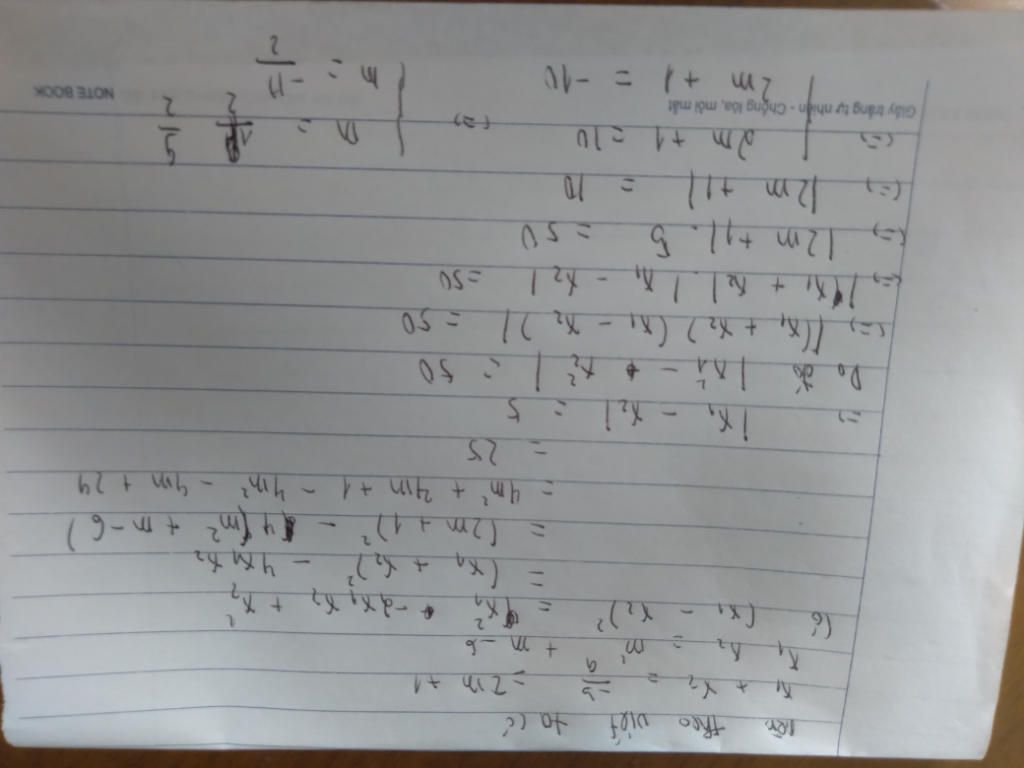 nên theo viét ta có
x₁ + x₂ = -b/a = 2m + 1
x₁ x₂ = m² + m - 6
Có (x₁ - x₂)² = x₁² - 2x₁x₂ + x₂²
= (x₁ + x₂)² - 4x₁x₂
= (2m + 1)² - 4(m² + m - 6)
= 4m² + 4m + 1 - 4m² - 4m + 24
= 25
=> |x₁ - x₂| = 5
Do đó |x₁² - x₂²| = 50
(=) |(x₁ + x₂)(x₁ - x₂)| = 50
(=) |x₁ + x₂| . |x₁ - x₂| = 50
(=) |2m + 1| . 5 = 50
(=) |2m + 1| = 10
(=) [ 2m + 1 = 10 (=) [ m = 9/2
2m + 1 = -10 m = -11/2
Giấy trắng tự nhiên - Chống lóa, mỏi mắt
NOTE BOOK